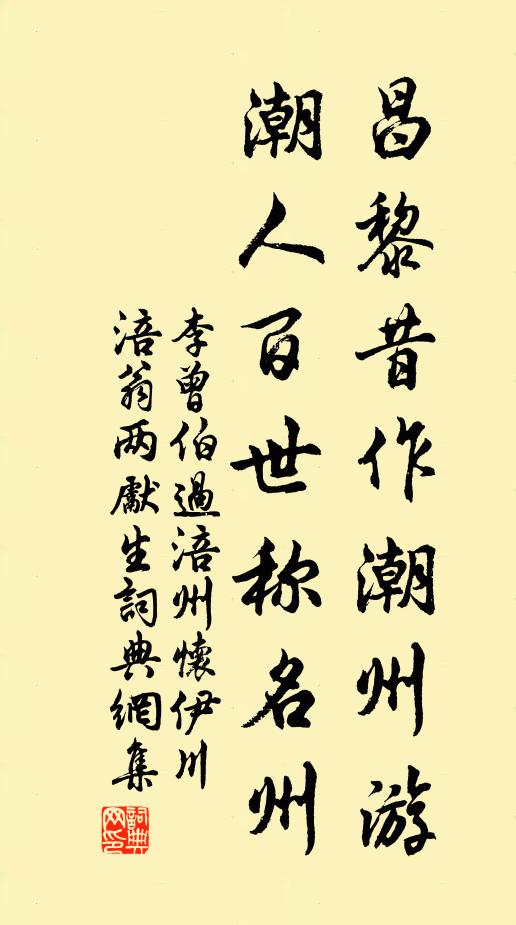 昌黎昔作潮州游
潮人百世称名州
李曾伯過涪州懷伊川
涪翁两獻生詞典網集
詞典網印